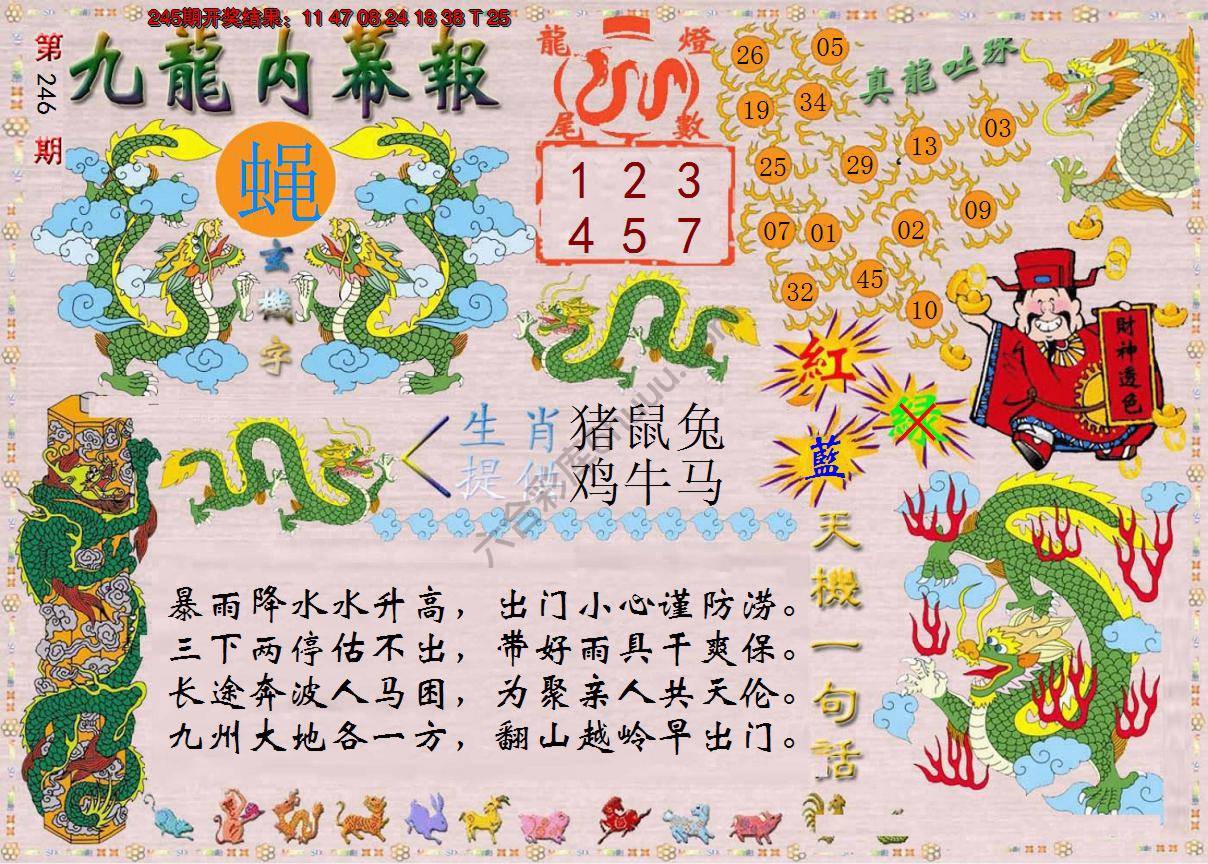 245期开奖结果：11 47 08 24 18 38 T 25
第246期
九龍内幕報
蝇
玄機字
龍燈
尾數
1 2 3
4 5 7
真龍吐珠
26 05
19 34
25 29 13 03
07 01 02 09
32 45 10
財神透色
紅
綠
藍
生肖 猪鼠兔
提供 鸡牛马
天機一句話
暴雨降水水升高，出门小心谨防涝。
三下两停估不出，带好雨具干爽保。
长途奔波人马困，为聚亲人共天伦。
九州大地各一方，翻山越岭早出门。